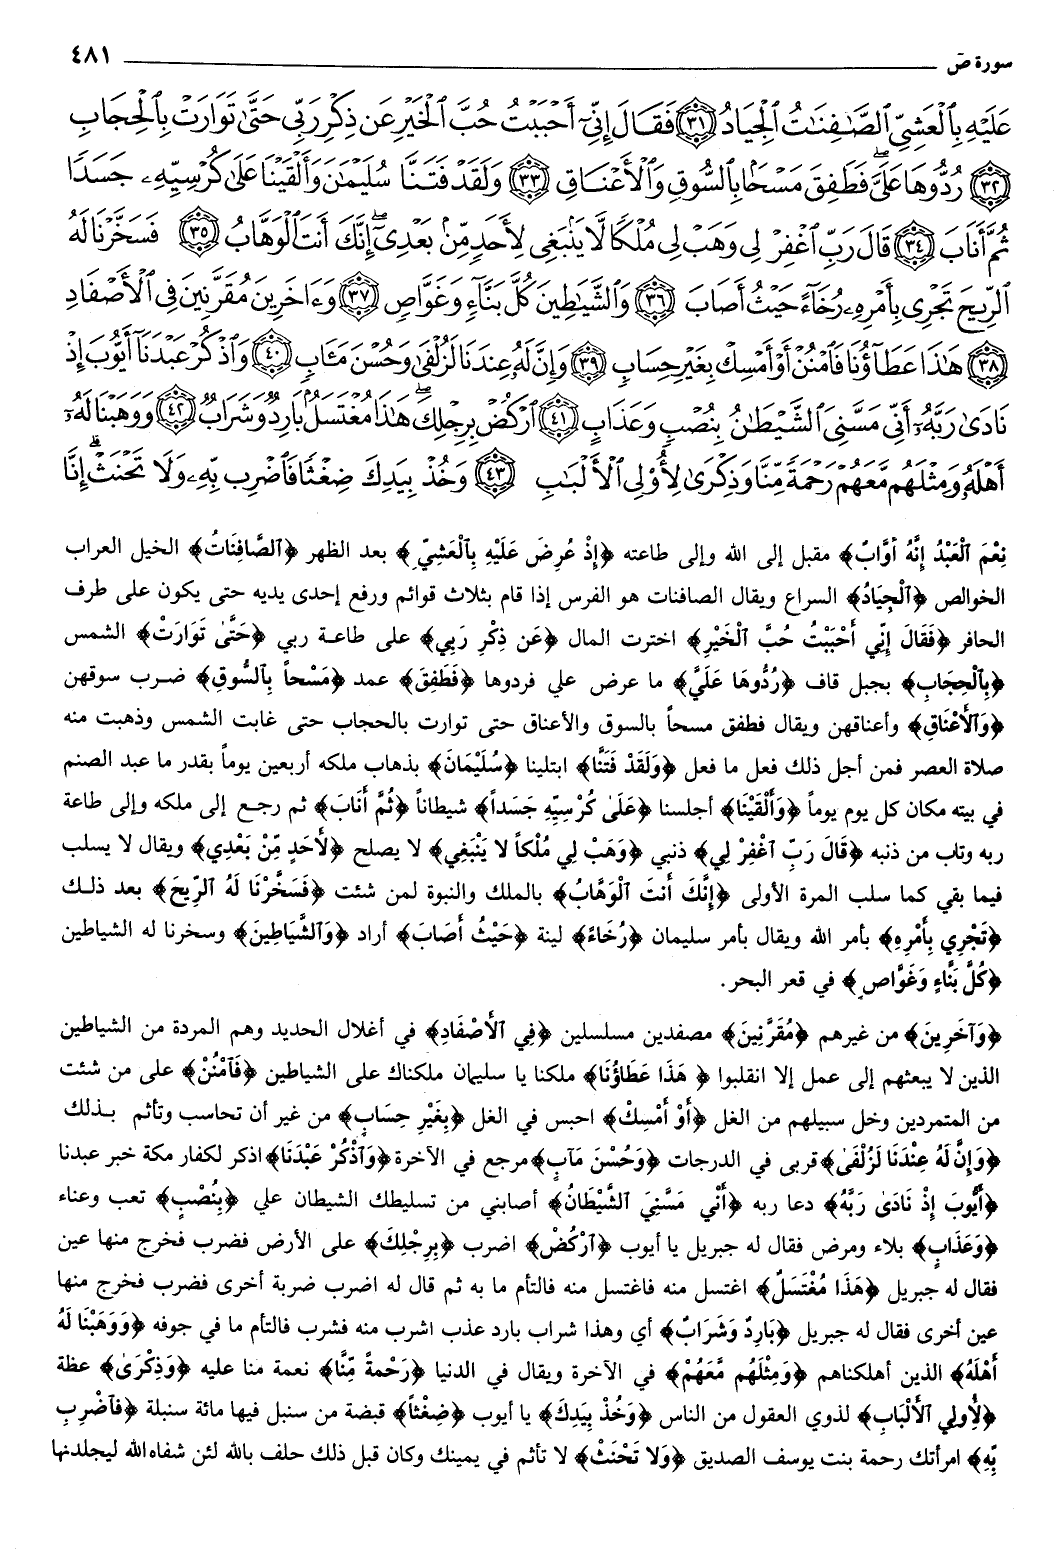 سورة صَ ٤٨١
عَلَيْهِ بِالْعَشِيِّ الصَّافِنَاتُ الْجِيَادُ ﴿٣١﴾ فَقَالَ إِنِّي أَحْبَبْتُ حُبَّ الْخَيْرِ عَن ذِكْرِ رَبِّي حَتَّىٰ تَوَارَتْ بِالْحِجَابِ
﴿٣٢﴾ رُدُّوهَا عَلَيَّ ۖ فَطَفِقَ مَسْحًا بِالسُّوقِ وَالْأَعْنَاقِ ﴿٣٣﴾ وَلَقَدْ فَتَنَّا سُلَيْمَانَ وَأَلْقَيْنَا عَلَىٰ كُرْسِيِّهِ جَسَدًا
ثُمَّ أَنَابَ ﴿٣٤﴾ قَالَ رَبِّ اغْفِرْ لِي وَهَبْ لِي مُلْكًا لَّا يَنبَغِي لِأَحَدٍ مِّنْ بَعْدِي ۖ إِنَّكَ أَنتَ الْوَهَّابُ ﴿٣٥﴾ فَسَخَّرْنَا لَهُ
الرِّيحَ تَجْرِي بِأَمْرِهِ رُخَاءً حَيْثُ أَصَابَ ﴿٣٦﴾ وَالشَّيَاطِينَ كُلَّ بَنَّاءٍ وَغَوَّاصٍ ﴿٣٧﴾ وَءَاخَرِينَ مُقَرَّنِينَ فِي الْأَصْفَادِ
﴿٣٨﴾ هَٰذَا عَطَاؤُنَا فَامْنُنْ أَوْ أَمْسِكْ بِغَيْرِ حِسَابٍ ﴿٣٩﴾ وَإِنَّ لَهُ عِندَنَا لَزُلْفَىٰ وَحُسْنَ مَـَٔابٍ ﴿٤٠﴾ وَاذْكُرْ عَبْدَنَا أَيُّوبَ إِذْ
نَادَىٰ رَبَّهُ أَنِّي مَسَّنِيَ الشَّيْطَانُ بِنُصْبٍ وَعَذَابٍ ﴿٤١﴾ ارْكُضْ بِرِجْلِكَ ۖ هَٰذَا مُغْتَسَلٌ بَارِدٌ وَشَرَابٌ ﴿٤٢﴾ وَوَهَبْنَا لَهُ
أَهْلَهُ وَمِثْلَهُم مَّعَهُمْ رَحْمَةً مِّنَّا وَذِكْرَىٰ لِأُولِي الْأَلْبَابِ ﴿٤٣﴾ وَخُذْ بِيَدِكَ ضِغْثًا فَاضْرِب بِّهِ وَلَا تَحْنَثْ ۗ إِنَّا
نِعْمَ ٱلْعَبْدُ إِنَّهُ أَوَّابٌ﴾ مقبل إلى الله وإلى طاعته ﴿إِذْ عُرِضَ عَلَيْهِ بِٱلْعَشِيِّ﴾ بعد الظهر ﴿ٱلصَّافِنَاتُ﴾ الخيل العراب
الخوالص ﴿ٱلْجِيَادُ﴾ السراع ويقال الصافنات هو الفرس إذا قام بثلاث قوائم ورفع إحدى يديه حتى يكون على طرف
الحافر ﴿فَقَالَ إِنِّي أَحْبَبْتُ حُبَّ ٱلْخَيْرِ﴾ اخترت المال ﴿عَن ذِكْرِ رَبِي﴾ على طاعة ربي ﴿حَتَّىٰ تَوَارَتْ﴾ الشمس
﴿بِٱلْحِجَابِ﴾ بجبل قاف ﴿رُدُّوهَا عَلَيَّ﴾ ما عرض علي فردوها ﴿فَطَفِقَ﴾ عمد ﴿مَسْحاً بِٱلسُّوقِ﴾ ضرب سوقهن
﴿وَٱلأَعْنَاقِ﴾ وأعناقهن ويقال فطفق مسحاً بالسوق والأعناق حتى توارت بالحجاب حتى غابت الشمس وذهبت منه
صلاة العصر فمن أجل ذلك فعل ما فعل ﴿وَلَقَدْ فَتَنَّا﴾ ابتلينا ﴿سُلَيْمَانَ﴾ بذهاب ملكه أربعين يوماً بقدر ما عبد الصنم
في بيته مكان كل يوم يوماً ﴿وَأَلْقَيْنَا﴾ أجلسنا ﴿عَلَىٰ كُرْسِيِّهِ جَسَداً﴾ شيطاناً ﴿ثُمَّ أَنَابَ﴾ ثم رجع إلى ملكه وإلى طاعة
ربه وتاب من ذنبه ﴿قَالَ رَبِّ ٱغْفِرْ لِي﴾ ذنبي ﴿وَهَبْ لِي مُلْكاً لا يَنْبَغِي﴾ لا يصلح ﴿لأَحَدٍ مِّنْ بَعْدِي﴾ ويقال لا يسلب
فيما بقي كما سلب المرة الأولى ﴿إِنَّكَ أَنتَ ٱلْوَهَّابُ﴾ بالملك والنبوة لمن شئت ﴿فَسَخَّرْنَا لَهُ ٱلرِّيحَ﴾ بعد ذلك
﴿تَجْرِي بِأَمْرِهِ﴾ بأمر الله ويقال بأمر سليمان ﴿رُخَاءً﴾ لينة ﴿حَيْثُ أَصَابَ﴾ أراد ﴿وَٱلشَّيَاطِينَ﴾ وسخرنا له الشياطين
﴿كُلَّ بَنَّاءٍ وَغَوَّاصٍ﴾ في قعر البحر.
﴿وَآخَرِينَ﴾ من غيرهم ﴿مُقَرَّنِينَ﴾ مصفدين مسلسلين ﴿فِي ٱلأَصْفَادِ﴾ في أغلال الحديد وهم المردة من الشياطين
الذين لا يبعثهم إلى عمل إلا انقلبوا ﴿هَذَا عَطَاؤُنَا﴾ ملكنا يا سليمان ملكناك على الشياطين ﴿فَٱمْنُنْ﴾ على من شئت
من المتمردين وخل سبيلهم من الغل ﴿أَوْ أَمْسِكْ﴾ احبس في الغل ﴿بِغَيْرِ حِسَابٍ﴾ من غير أن تحاسب وتأثم بذلك
﴿وَإِنَّ لَهُ عِنْدَنَا لَزُلْفَىٰ﴾ قربى في الدرجات ﴿وَحُسْنَ مَآبٍ﴾ مرجع في الآخرة ﴿وَٱذْكُرْ عَبْدَنَا﴾ اذكر لكفار مكة خبر عبدنا
﴿أَيُّوبَ إِذْ نَادَىٰ رَبَّهُ﴾ دعا ربه ﴿أَنِّي مَسَّنِيَ ٱلشَّيْطَانُ﴾ أصابني من تسليطك الشيطان علي ﴿بِنُصْبٍ﴾ تعب وعناء
﴿وَعَذَابٍ﴾ بلاء ومرض فقال له جبريل يا أيوب ﴿ٱرْكُضْ﴾ اضرب ﴿بِرِجْلِكَ﴾ على الأرض فضرب فخرج منها عين
فقال له جبريل ﴿هَذَا مُغْتَسَلٌ﴾ اغتسل منه فاغتسل منه فالتأم ما به ثم قال له اضرب ضربة أخرى فضرب فخرج منها
عين أخرى فقال له جبريل ﴿بَارِدٌ وَشَرَابٌ﴾ أي وهذا شراب بارد عذب اشرب منه فشرب فالتأم ما في جوفه ﴿وَوَهَبْنَا لَهُ
أَهْلَهُ﴾ الذين أهلكناهم ﴿وَمِثْلَهُم مَّعَهُمْ﴾ في الآخرة ويقال في الدنيا ﴿رَحْمَةً مِّنَّا﴾ نعمة منا عليه ﴿وَذِكْرَىٰ﴾ عظة
﴿لأُولِي ٱلأَلْبَابِ﴾ لذوي العقول من الناس ﴿وَخُذْ بِيَدِكَ﴾ يا أيوب ﴿ضِغْثاً﴾ قبضة من سنبل فيها مائة سنبلة ﴿فَٱضْرِب
بِّهِ﴾ امرأتك رحمة بنت يوسف الصديق ﴿وَلا تَحْنَثْ﴾ لا تأثم في يمينك وكان قبل ذلك حلف بالله لئن شفاه الله ليجلدنها